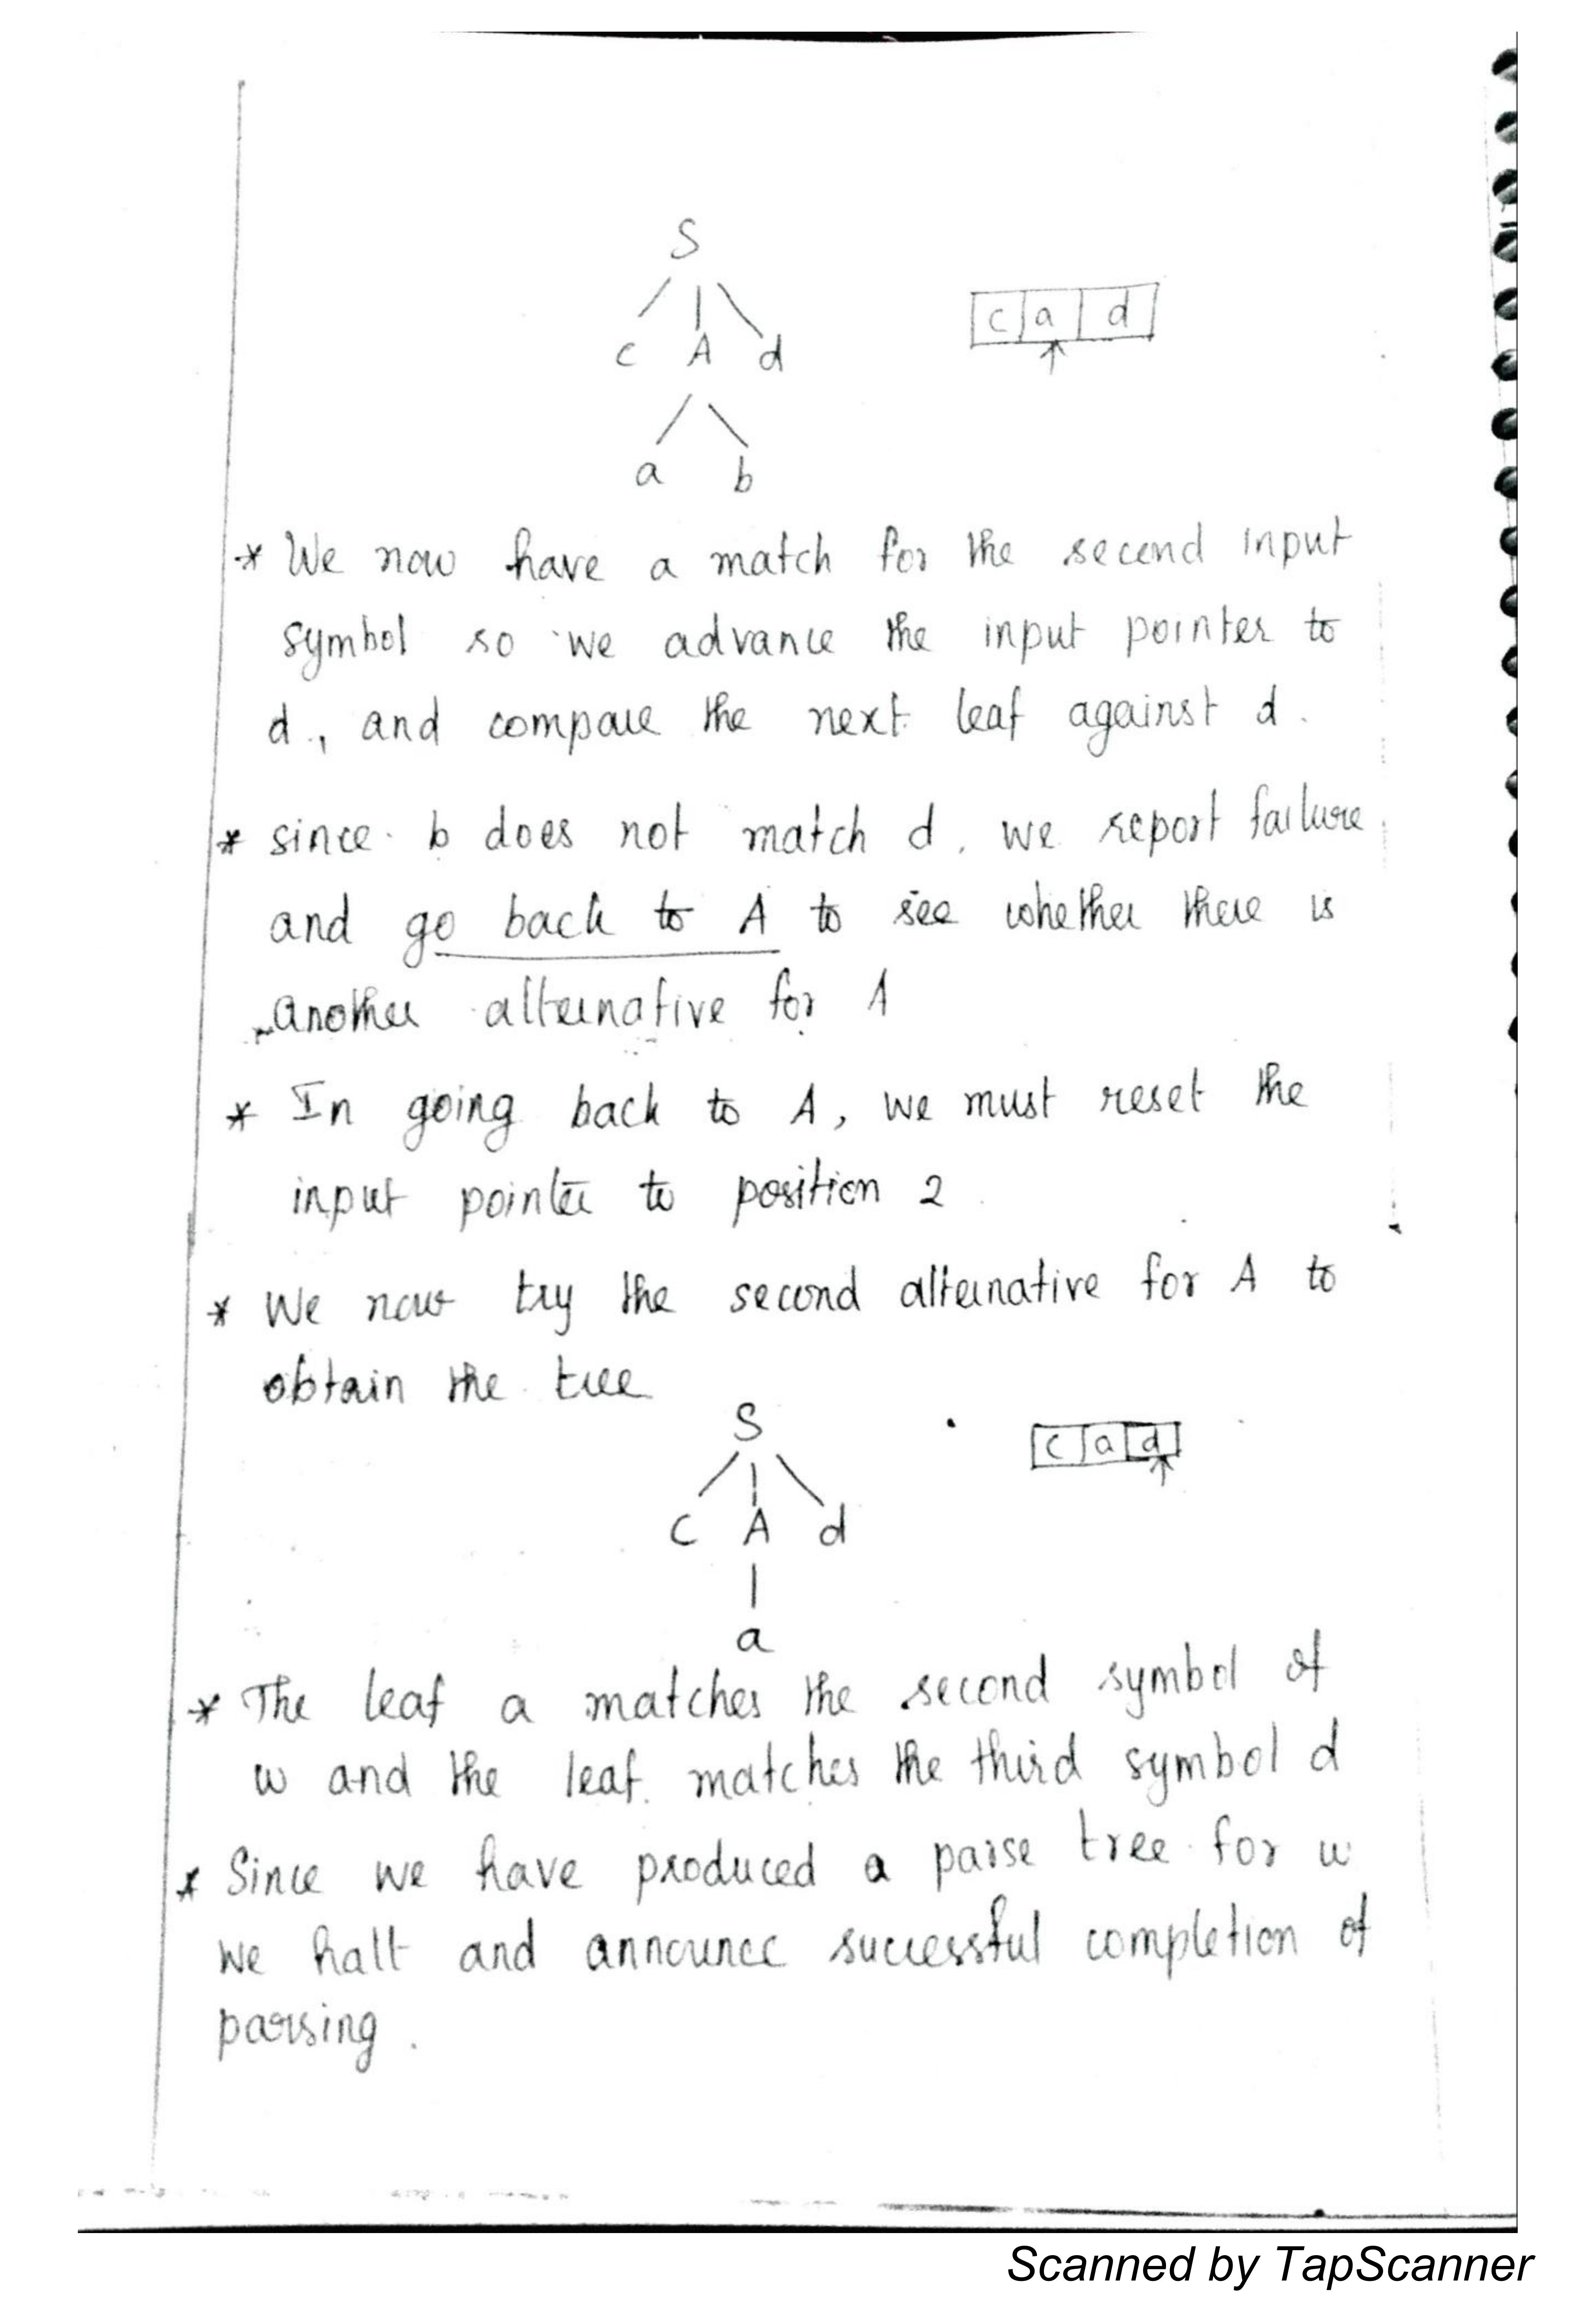 S
c A d
c a d
a b
* We now have a match for the second input
symbol so we advance the input pointer to
d, and compare the next leaf against d.
* since b does not match d, we report failure
and go back to A to see whether there is
another alternative for A
* In going back to A, we must reset the
input pointer to position 2
* We now try the second alternative for A to
obtain the tree
S
c a d
C A d
a
* The leaf a matches the second symbol of
w and the leaf matches the third symbol d
* Since we have produced a parse tree for w
we halt and announce successful completion of
parsing.
Scanned by TapScanner